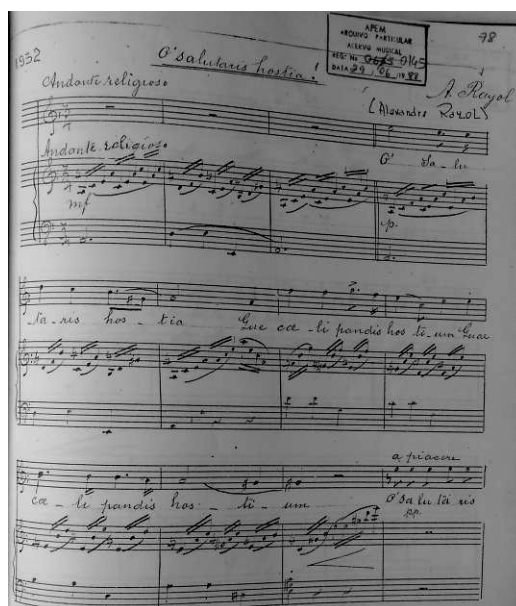 APEM
ARQUIVO PARTICULAR
ACERVO MUSICAL
REG: No 0675 0145
DATA 29 / 06 / 1988
98
1932
O'salutaris hostia!
A. Rayol
(Alexandre Rayol)
Andante religioso
O' Sa-lu
Andante religioso
mf
p.
-ta-ris hos-tia Quæ cæ-li pandis hos ti-um Quae
a piacere
cæ-li pandis hos-ti-um O'salutáris
pp.